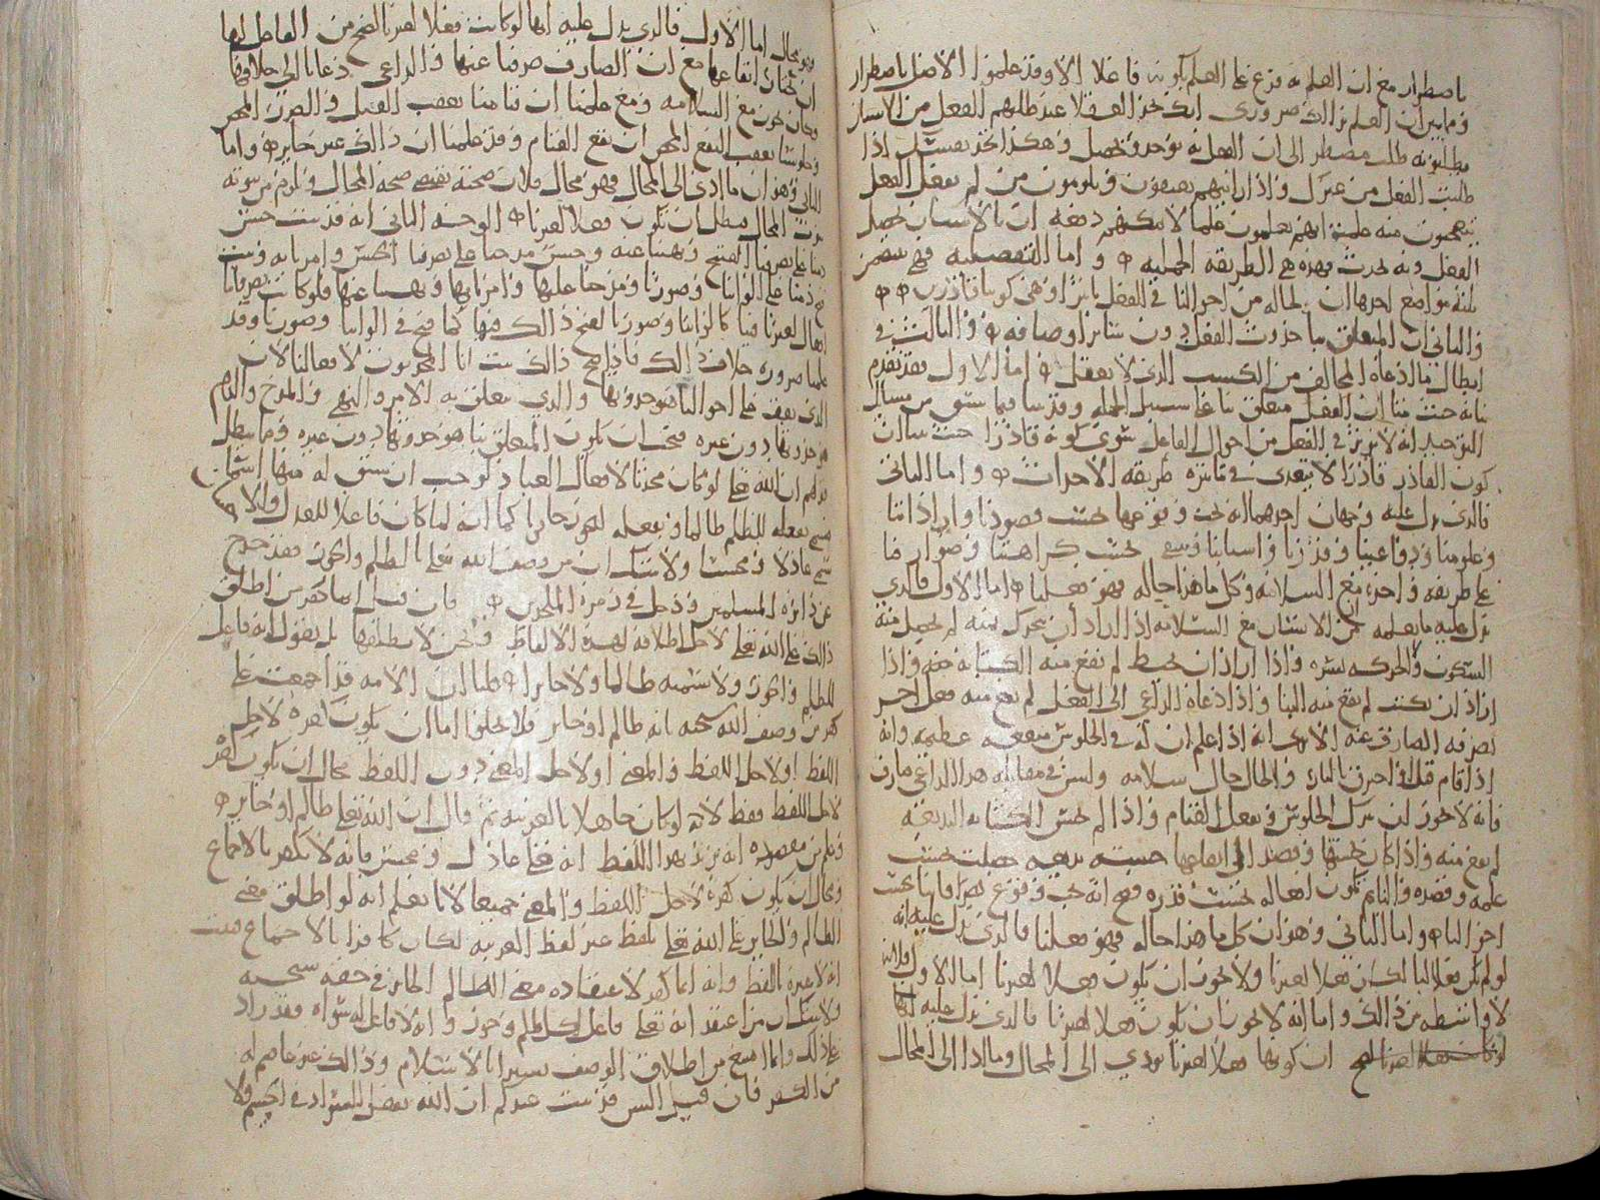 باضطرار مع ان العلم به فرع على العلم بكونه فاعلا الا وقد علموا الاصل باضطرار
ومما يبين ان العلم بذلك ضروري انك تجد العقلا عند طلبهم الفعل من الانسان
يطلبونه طلب مضطر الى ان الفعل به يوجد ويحصل وهكذا تجد نفسك اذا
طلبت الفعل من غيرك واذا رايتهم يعنفون ويلومون من لم يفعل الفعل
يتعجبون منه علمت انهم يعلمون علما لا يمكنهم دفعه ان بالانسان يحصل
الفعل وبه يحدث فهذه هي الطريقة الجملية واما التفصيلية فهي تتضمن
ثلثة مواضع احدها ان لحاله من احوالنا في الفعل تاثيرا وهي كوننا قادرين
والثاني ان المتعلق بنا حدوث الفعل دون سائر اوصافه والثالث في
ابطال ما ادعاه المخالف من الكسب الذي لا يعقل اما الاول فقد تقدم
بيانه حيث بينا ان الفعل متعلق بنا على سبيل الجملة وقد بينا فيما سبق من مسائل
التوحيد انه لا يوثر في الفعل من احوال الفاعل سوى كونه قادرا حيث بينا ان
كون القادر قادرا لا يتعدى في تاثيره طريقة الاحداث واما الثاني
فالذي يدل عليه وجهان احدهما انه يجب وقوعها بحسب قصودنا وارادتنا
وعلومنا ودواعينا وقدرنا واسبابنا وينتفي بحسب كراهتنا وصوارفنا
على طريقة واحدة مع السلامة وكل ما هذا حاله فهو فعلنا اما الاول فالذي
يدل عليه ما يعلمه من الانسان مع السلامة اذا اراد ان يتحرك يمنة لم يحصل منه
السكون والحركة يسرة واذا اراد ان يخيط لم يقع منه الكتابة منه واذا
اراد ان يكتب لم يقع منه البنا واذا دعاه الداعي الى الفعل لم يقع منه فعل اخر
يصرفه الصارف عنه الا ترى انه اذا علم ان له في الجلوس منفعة عظيمة وانه
اذا قام قتل او احرق بالنار والحال حال سلامة وليس في مقابلة هذا الداعي صارف
فانه لا يجوز ان يترك الجلوس ويفعل القيام واذا لم يحسن الكتابة البديعة
لم يقع منه واذا كان يحسنها وقصد الى ايقاعها حسنة بديعة حصلت بحسب
علمه وقصده والنائم تكون افعاله بحسب قدره فصح انه يجب وقوع تصرفاتنا بحسب
احوالنا واما الثاني وهو ان كل ما هذا حاله فهو فعلنا فالذي يدل عليه انه
لو لم يكن فعلا لنا لكان فعلا لغيرنا ولا يجوز ان يكون فعلا لغيرنا اما الاول فلانه
لا واسطة بين ذلك واما انه لا يجوز ان يكون فعلا لغيرنا فالذي يدل عليه انها
لو كانت فعلا لغيرنا لصح ان كونها فعلا لغيرنا يودي الى المحال وما ادا الى المحال
فهو محال اما الاول فالذي يدل عليه انها لو كانت فعلا لغيرنا لصح من الفاعل لها
ان يختار ايقاعها مع ان الصارف صرفنا عنها والداعي دعانا الى خلافها
وكان يجوز مع السلامة ومع علمنا ان قيامنا يعقب القتل والضرر المحض
وجلوسنا يعقب النفع المحض ان يقع القيام وقد علمنا ان ذلك غير جائز واما
الثاني وهو ان ما ادى الى المحال فهو محال فلان صحته تقتضي صحة المحال ويلزم من ثبوته
ثبوت المحال فبطل ان تكون فعلا لغيرنا الوجه الثاني انه قد ثبت حسن
ذمنا على تصرفنا القبيح ونهينا عنه وحسن مدحنا على تصرفنا الحسن وامرنا به وثبت
قبح ذمنا على الواننا وصورنا ومدحنا عليها وامرنا بها ونهينا عنها فلو كانت تصرفاتنا
افعال لغيرنا فينا كالواننا وصورنا لقبح ذلك فيها كما قبح في الواننا وصورنا وقد
علمنا ضرورة خلاف ذلك فاذا صح ذلك ثبت انا المحدثون لافعالنا لان
الذي يقف على احوالنا هو حدوثها والذي يتعلق به الامر والنهي والمدح والذم
هو حدوثها دون غيره فيجب ان يكون المتعلق بنا هو حدوثها دون غيره ومما يبطل
قولهم ان الله تعالى لو كان محدثا لافعال العباد لوجب ان يشتق له منها اسما
فيسمى بفعله للظلم ظالما وبفعله للجور جائرا كما انه لما كان فاعلا للعدل والاحسان
سمي عادلا ومحسنا ولا شك ان من وصف الله تعالى بالظلم والجور فقد خرج
عن دائرة المسلمين ودخل في زمرة الملحدين فان قيل انما كفر من اطلق
ذلك على الله تعالى لاجل اطلاقه لهذه الالفاظ ونحن لا نطلقها بل نقول انه فاعل
للظلم والجور ولا نسميه ظالما ولا جائرا قلنا ان الامة قد اجمعت على
كفر من وصف الله سبحانه بانه ظالم او جائر فلا يخلوا اما ان يكون كفره لاجل
اللفظ او لاجل اللفظ والمعنى او لاجل المعنى دون اللفظ محال ان يكون كفر
لاجل اللفظ فقط لانه لو كان جاهلا بالعربية ثم قال ان الله تعالى ظالم او جائر
وعلم من مقصده انه يريد بهذا اللفظ انه تعالى عادل ومحسن فانه لا يكفر بالاجماع
ومحال ان يكون كفره لاجل اللفظ والمعنى جميعا لانا نعلم انه لو اطلق معنى
الظالم والجائر على الله تعالى بلفظ غير لفظ العربية لكان كافرا بالاجماع فثبت
انه لا عبرة باللفظ وانه انما كفر لاعتقاده معنى الظالم الجائر في حقه سبحانه
ولا شك ان من اعتقد انه تعالى فاعل لكل ظلم وجور وانه لا فاعل له سواه فقد زاد
على ذلك وانما امتنع من اطلاق الوصف تسترا بالاسلام وذلك غير عاصم له
من الكفر فان قيل اليس قد ثبت عندكم ان الله يفعل السواد في الجسم ولا